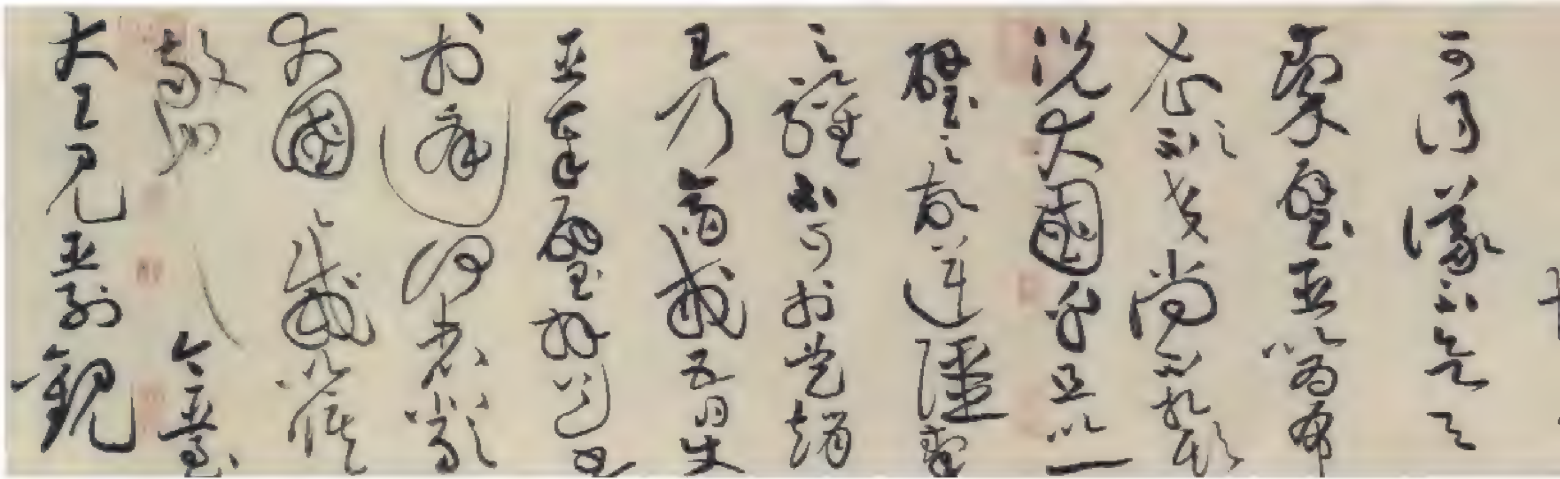 可得議不欲予
秦璧臣以為布
衣之交尚不相欺
況大國乎且以一
璧之故逆彊秦
之驩不可於是趙
王乃齋戒五日使
臣奉璧拜送書
於庭何者嚴
大國之威以修
敬也今臣至
大王見臣列觀